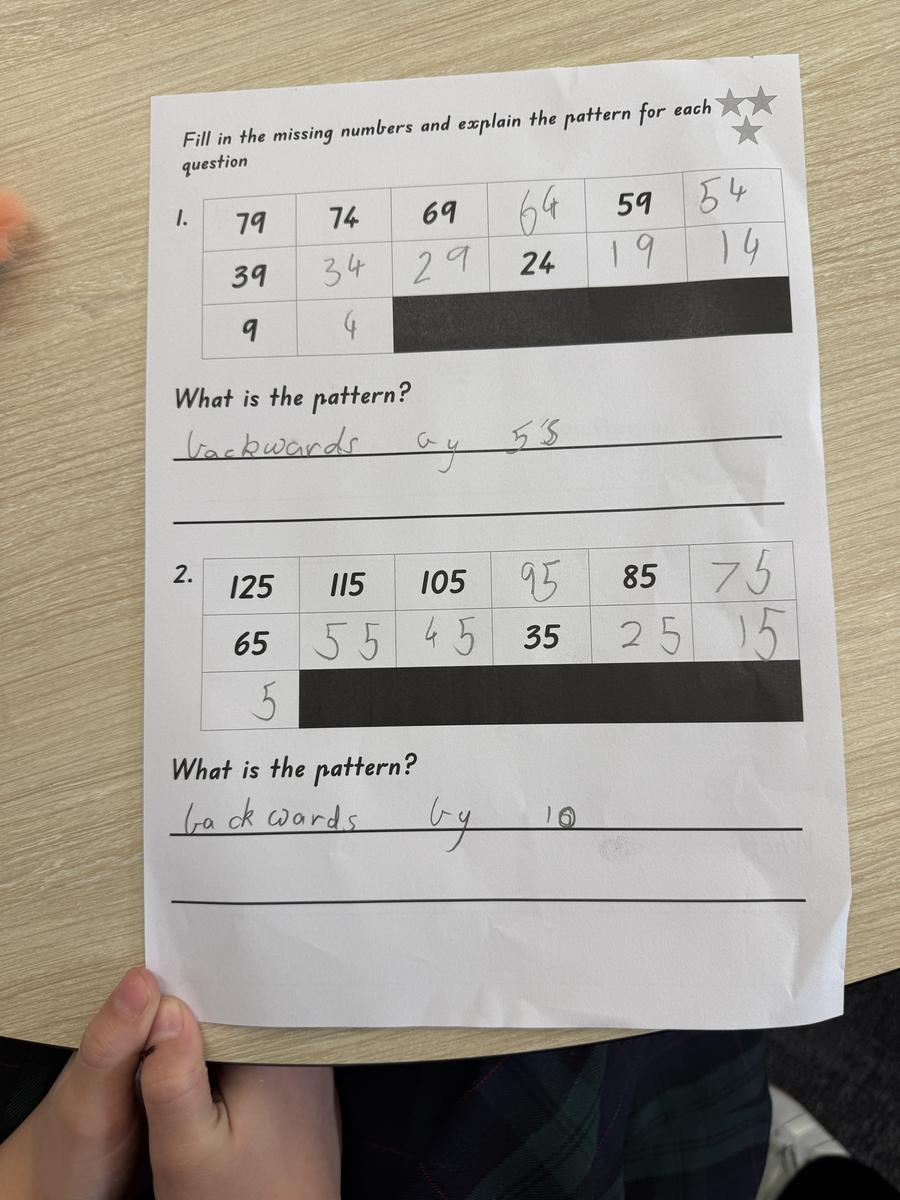 Fill in the missing numbers and explain the pattern for each
question
1. 79 74 69 64 59 54
39 34 29 24 19 14
9 4
What is the pattern?
backwards by 5's
2. 125 115 105 95 85 75
65 55 45 35 25 15
5
What is the pattern?
backwards by 10